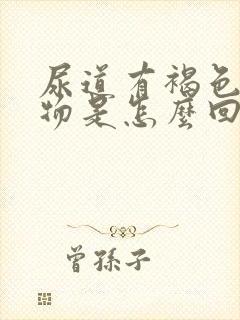 尿道有褐色
物是怎麼回
曾孫子